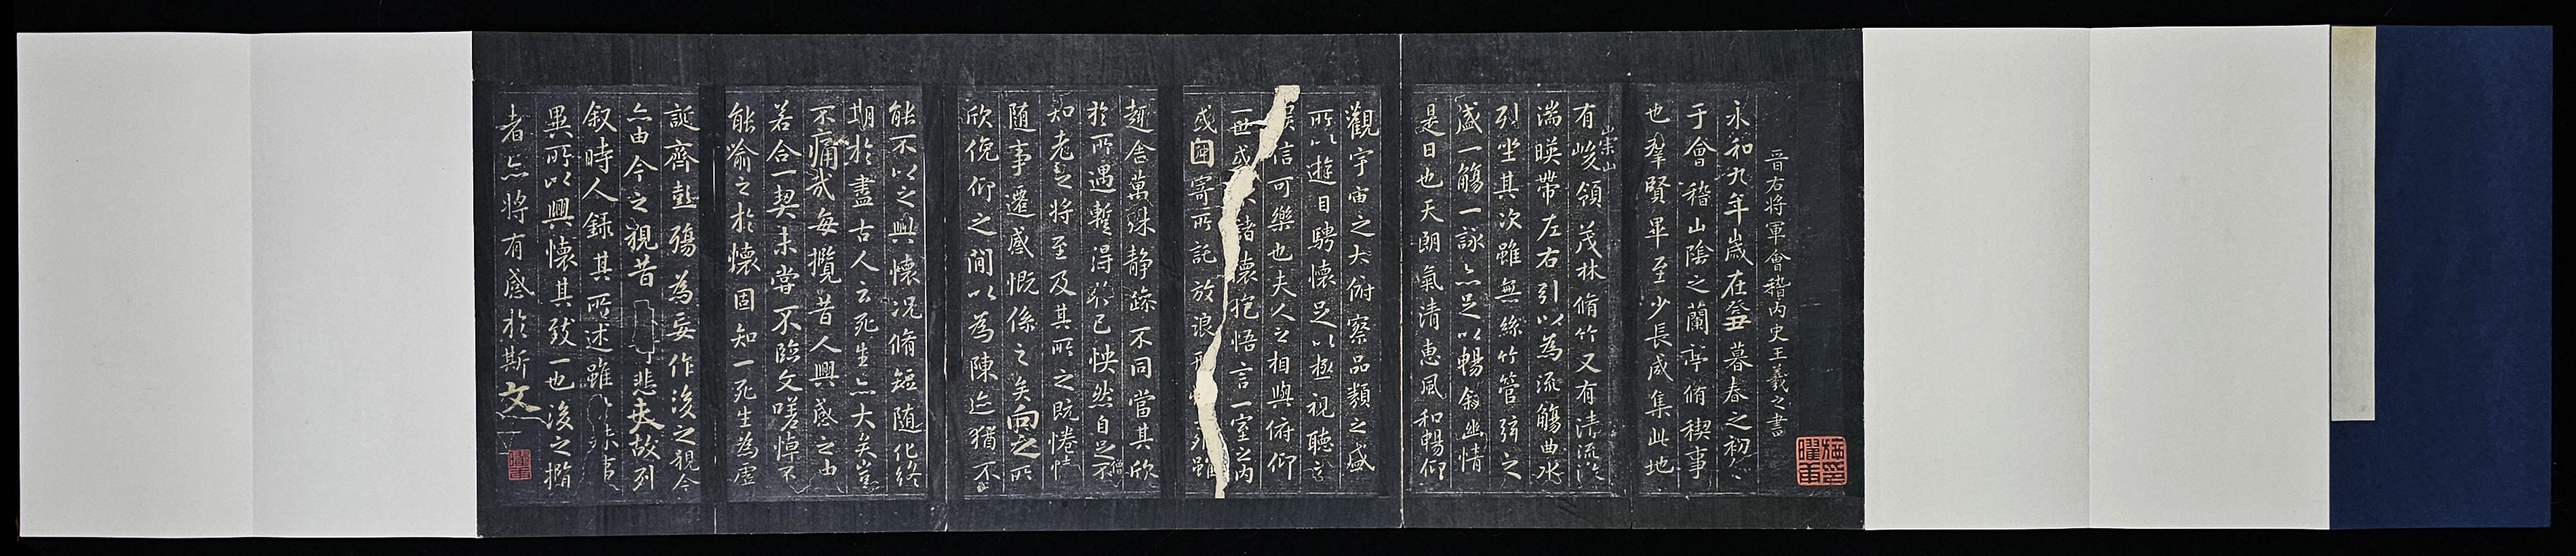 晉右将軍會稽内史王羲之書
永和九年歲在癸丑暮春之初會
于會稽山陰之蘭亭脩稧事
也羣賢畢至少長咸集此地
有峻領茂林脩竹又有清流激
崇山
湍暎帶左右引以為流觴曲水
列坐其次雖無絲竹管弦之
盛一觴一詠亦足以暢叙幽情
是日也天朗氣清惠風和暢仰
觀宇宙之大俯察品類之盛
所以遊目騁懷足以極視聽之
娱信可樂也夫人之相與俯仰
一世或諸懷抱悟言一室之内
或因寄所託放浪形雖
趣舍萬殊静躁不同當其欣
於所遇蹔得於己怏然自足不
知老之将至及其所之既惓情
隨事遷感慨係之矣向之所
欣俛仰之間以為陳迹猶不
能不以之興懷况脩短隨化終
期於盡古人云死生亦大矣豈
不痛哉每攬昔人興感之由
若合一契未嘗不臨文嗟悼不
能喻之於懷固知一死生為虚
誕齊彭殤為妄作後之視今
亦由今之視昔悲夫故列
叙時人録其所述雖世殊事
異所以興懷其致一也後之攬
者亦将有感於斯文